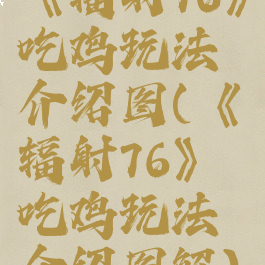 《辐射76》
吃鸡玩法
介绍图(《
辐射76》
吃鸡玩法
介绍图解)